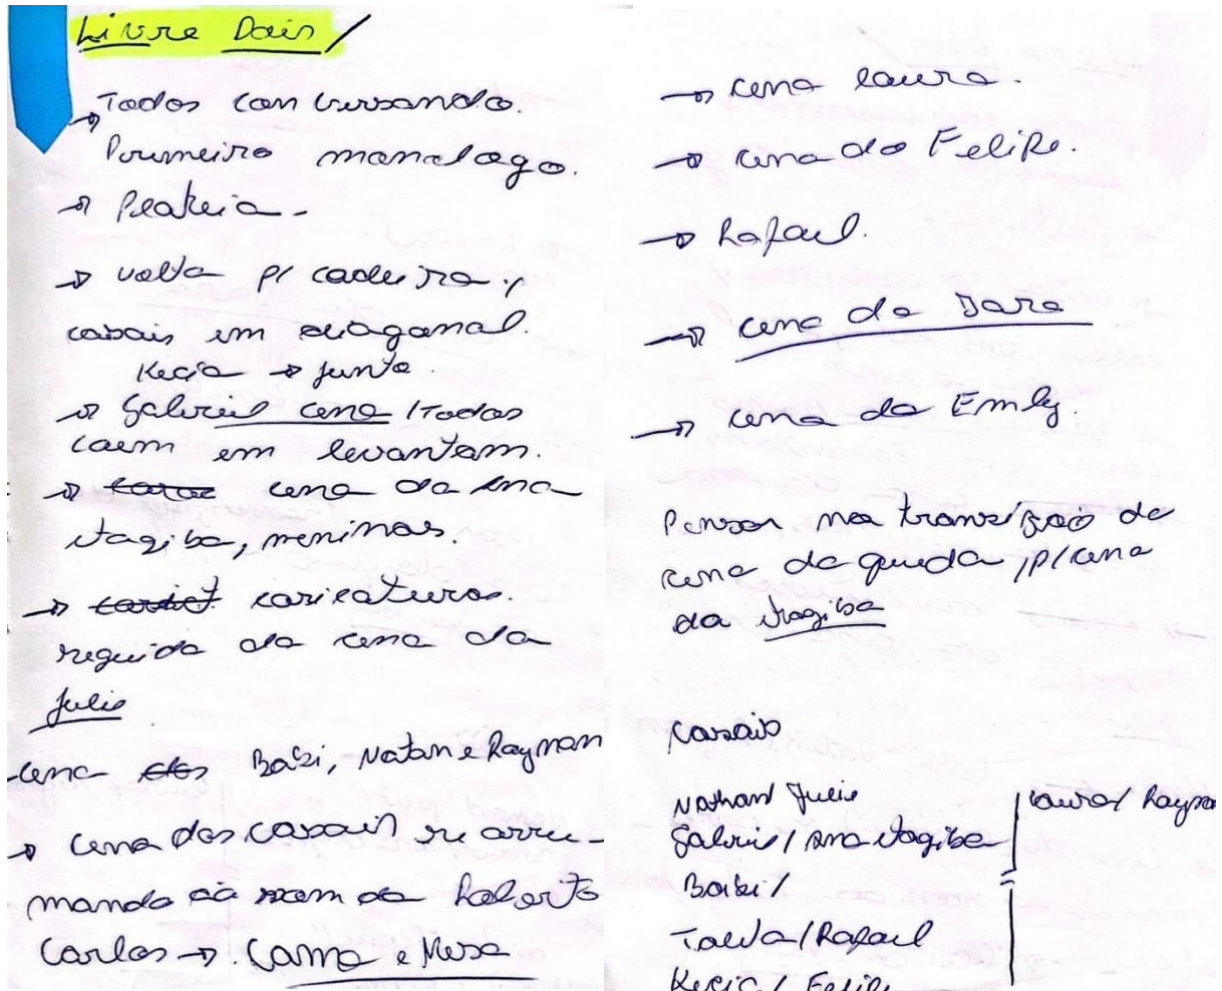 Livre Dois /
→ Todos conversando.
Primeiro monologo.
→ Plateia -
→ volta p/ cadeira,
casais em diagonal.
Kecia → junto.
→ Gabriel cena / Todos
caem em levantam.
→ cena da Ana
Itagiba, meninas.
→ caricaturas.
seguida da cena da
Julie
-cena Babi, Natan e Raynan
→ cena dos casais se arru-
mando ao som do Roberto
Carlos → Cama e Mesa
→ cena Laura.
→ cena do Felipe.
→ Rafael.
→ cena da Iara
→ cena da Emily.
Pensar na transição da
cena da queda, p/ cena
da Itagiba
Casais
Nathan/ Julie
Gabriel / Ana Itagiba
Babi /
Talita / Rafael
Kecia / Felipe
Laura / Raynan